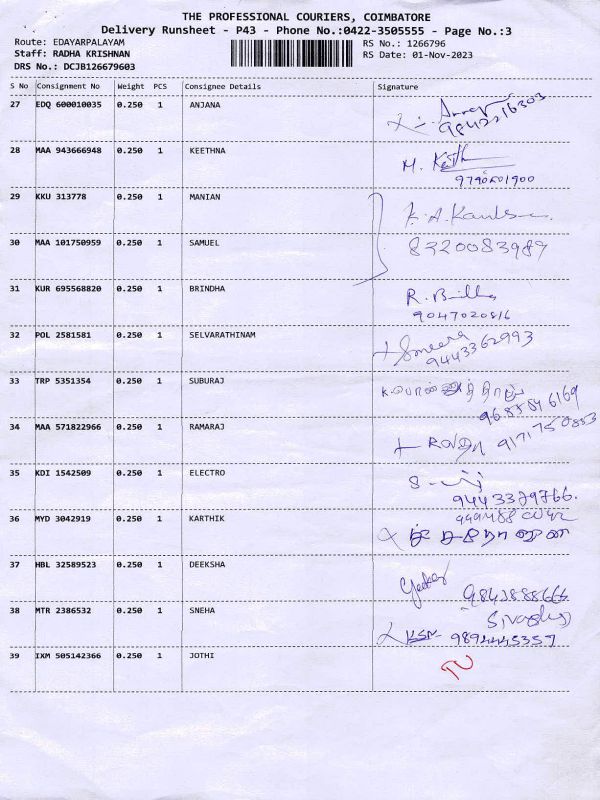 THE PROFESSIONAL COURIERS, COIMBATORE
Delivery Runsheet - P43 - Phone No.:0422-3505555 - Page No.:3
Route: EDAYARPALAYAM
RS No.: 1266796
Staff: RADHA KRISHNAN
RS Date: 01-Nov-2023
DRS No.: DCJB126679603
S No Consignment No Weight PCS Consignee Details Signature
27 EDQ 600010035 0.250 1 ANJANA
28 MAA 943666948 0.250 1 KEETHNA
M.
29 KKU 313778 0.250 1 MANIAN
K.A.
30 MAA 101750959 0.250 1 SAMUEL 8320083989
31 KUR 695568820 0.250 1 BRINDHA
R.
9047020816
32 POL 2581581 0.250 1 SELVARATHINAM
9443362993
33 TRP 5351354 0.250 1 SUBURAJ
34 MAA 571822966 0.250 1 RAMARAJ
35 KDI 1542509 0.250 1 ELECTRO
9443379766.
36 MYD 3042919 0.250 1 KARTHIK
37 HBL 32589523 0.250 1 DEEKSHA
38 MTR 2386532 0.250 1 SNEHA
9894445357
39 IXM 505142366 0.250 1 JOTHI